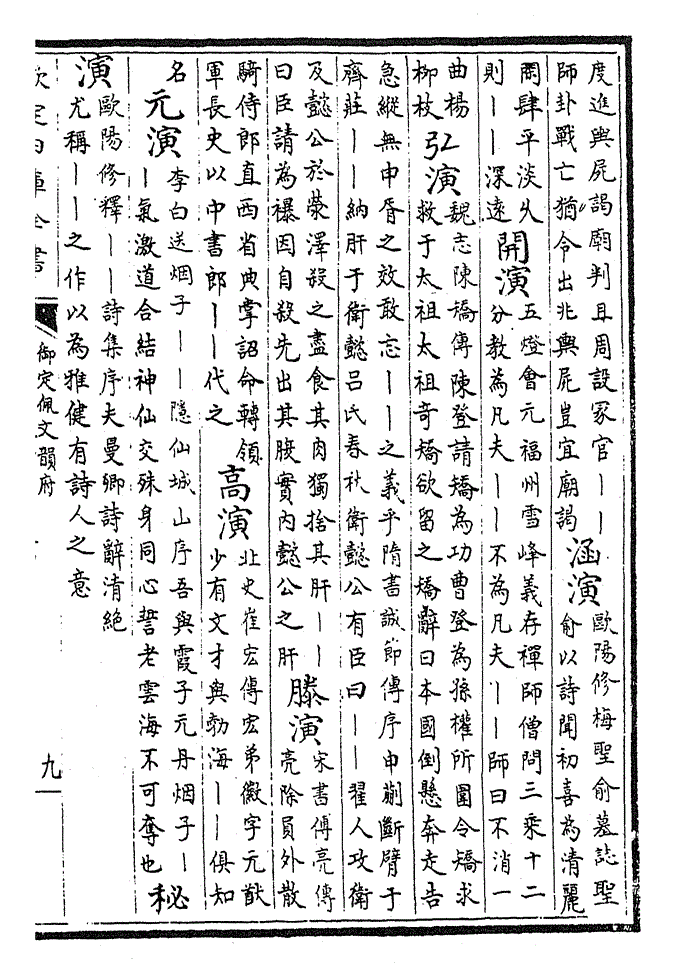 度進輿屍謁廟判且周設冢官丨丨
師卦戰亡猶令出兆輿屍豈宜廟謁
涵演
歐陽修梅聖俞墓誌聖
俞以詩聞初喜為清麗
閒肆平淡乆
則丨丨深遠
開演
五燈會元福州雪峰義存禪師僧問三乗十二
分教為凡夫丨丨不為凡夫丨丨師曰不消一
曲楊
柳枝
弘演
魏志陳矯傳陳登請矯為功曹登為孫權所圍令矯求
救于太祖太祖竒矯欲留之矯辭曰本國倒懸奔走告
急縱無申胥之效敢忘丨丨之義乎隋書誠節傳序申蒯斷臂于
齊莊丨丨納肝于衛懿吕氏春秋衛懿公有臣曰丨丨翟人攻衛
及懿公於熒澤殺之盡食其肉獨捨其肝丨丨
曰臣請為襮因自殺先出其腹實内懿公之肝
滕演
宋書傅亮傳
亮除員外散
騎侍郎直西省典掌詔命轉領
軍長史以中書郎丨丨代之
高演
北史崔宏傳宏弟徽字元猷
少有文才與勃海丨丨俱知
名
元演
李白送烟子丨丨隱仙城山序吾與霞子元丹烟子丨
丨氣激道合結神仙交殊身同心誓老雲海不可奪也
秘
演
歐陽修釋丨丨詩集序夫曼卿詩辭清絶
尤稱丨丨之作以為雅健有詩人之意
欽定四庫全書
御定佩文韻府
九